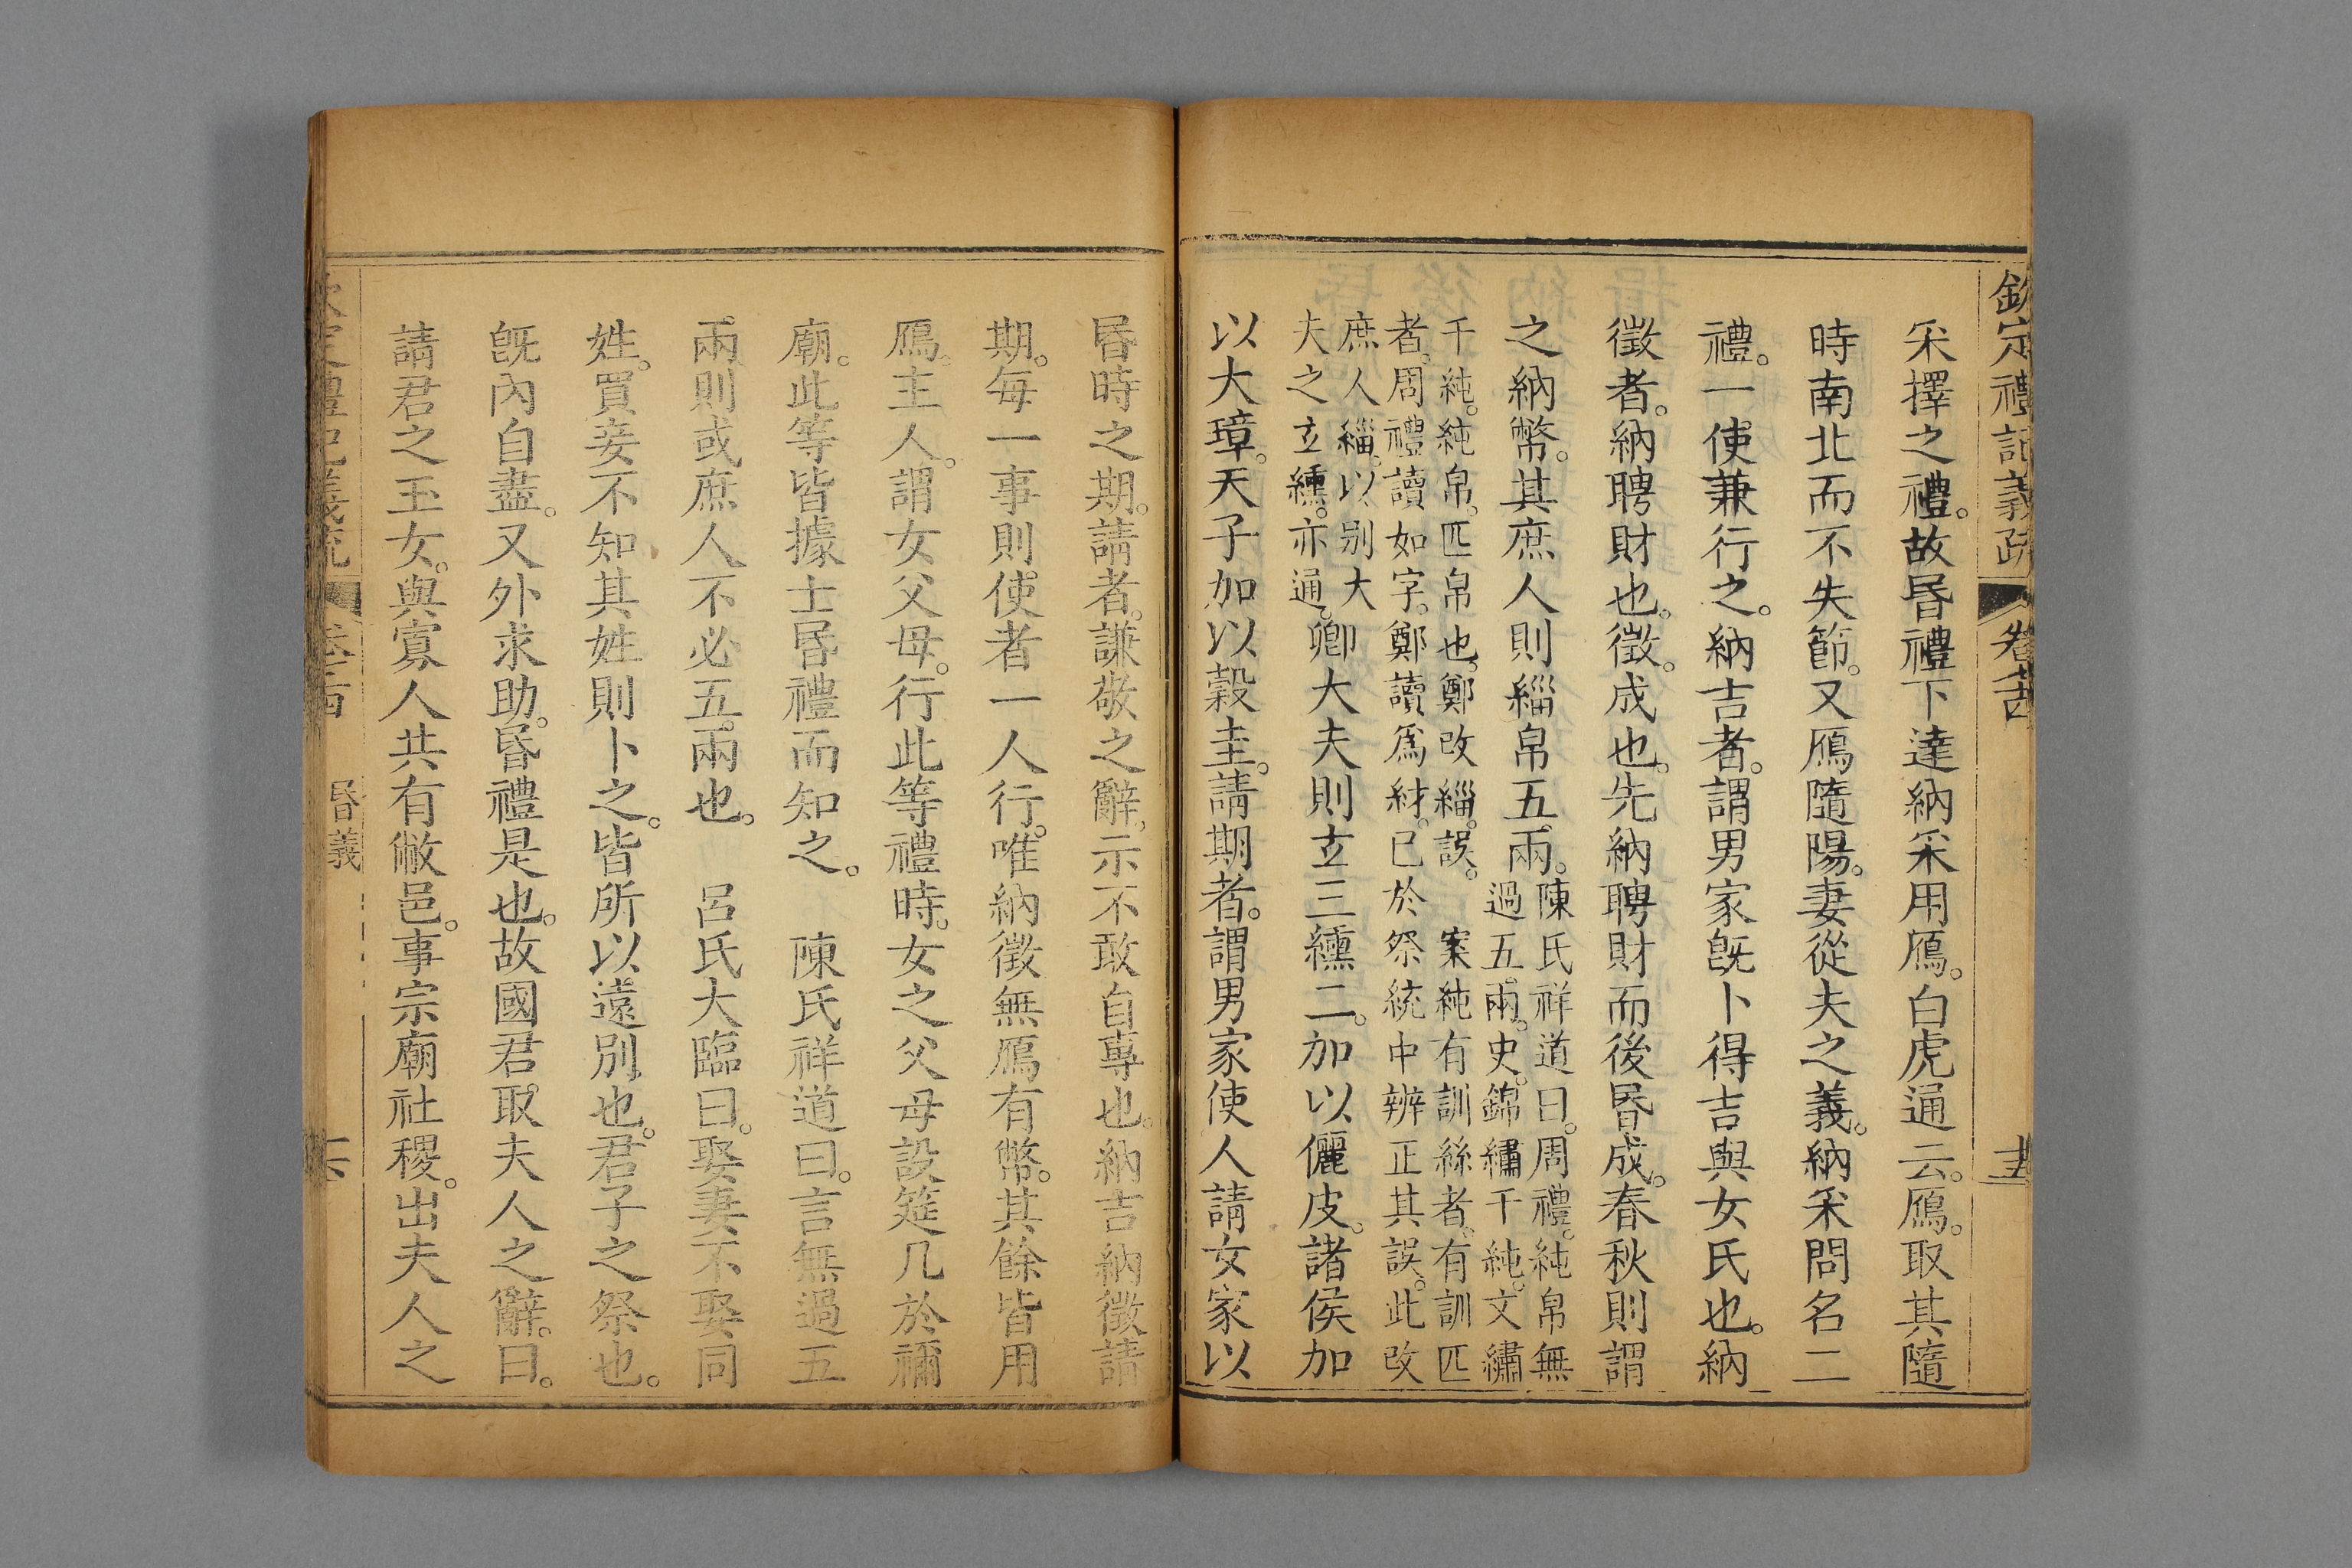 欽定禮記義疏 卷 
采擇之禮。故昬禮下達納采用鴈。白虎通云。鴈。取其隨
時南北而不失節。又鴈隨陽。妻從夫之義。納采問名二
禮。一使兼行之。納吉者。謂男家旣卜得吉與女氏也。納
徵者。納聘財也。徵。成也。先納聘財而後昬成。春秋則謂
之納幣。其庶人則緇帛五兩。
陳氏祥道曰。周禮。純帛無
過五兩。史。錦繡千純。文繡
千純。純帛。匹帛也。鄭改緇。誤。 案純有訓絲者。有訓匹
者。周禮讀如字。鄭讀爲紂。已於祭統中辨正其誤。此改
庶人緇。以別大
夫之玄纁。亦通。
卿大夫則玄三纁二。加以儷皮。諸侯加
以大璋。天子加以穀圭。請期者。謂男家使人請女家以
昬時之期。請者。謙敬之辭。示不敢自專也。納吉納徵請
期。每一事則使者一人行。唯納徵無鴈有幣。其餘皆用
鴈。主人。謂女父母。行此等禮時。女之父母設筵几於禰
廟。此等皆據士昬禮而知之。 陳氏祥道曰。言無過五
兩則或庶人不必五兩也。 呂氏大臨曰。娶妻不娶同
姓。買妾不知其姓則卜之。皆所以遠別也。君子之祭也。
旣內自盡。又外求助。昬禮是也。故國君取夫人之辭。曰。
請君之玉女。與寡人共有敝邑。事宗廟社稷。出夫人之
昬義